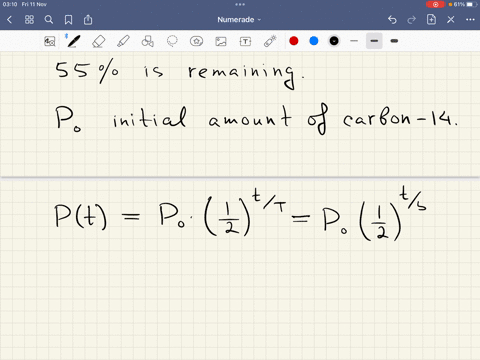 03:10 Fri 11 Nov
61%
Numerade
55% is remaining.
P₀ initial amount of carbon-14.
P(t) = P₀ · (1/2)^(t/T) = P₀ (1/2)^(t/5